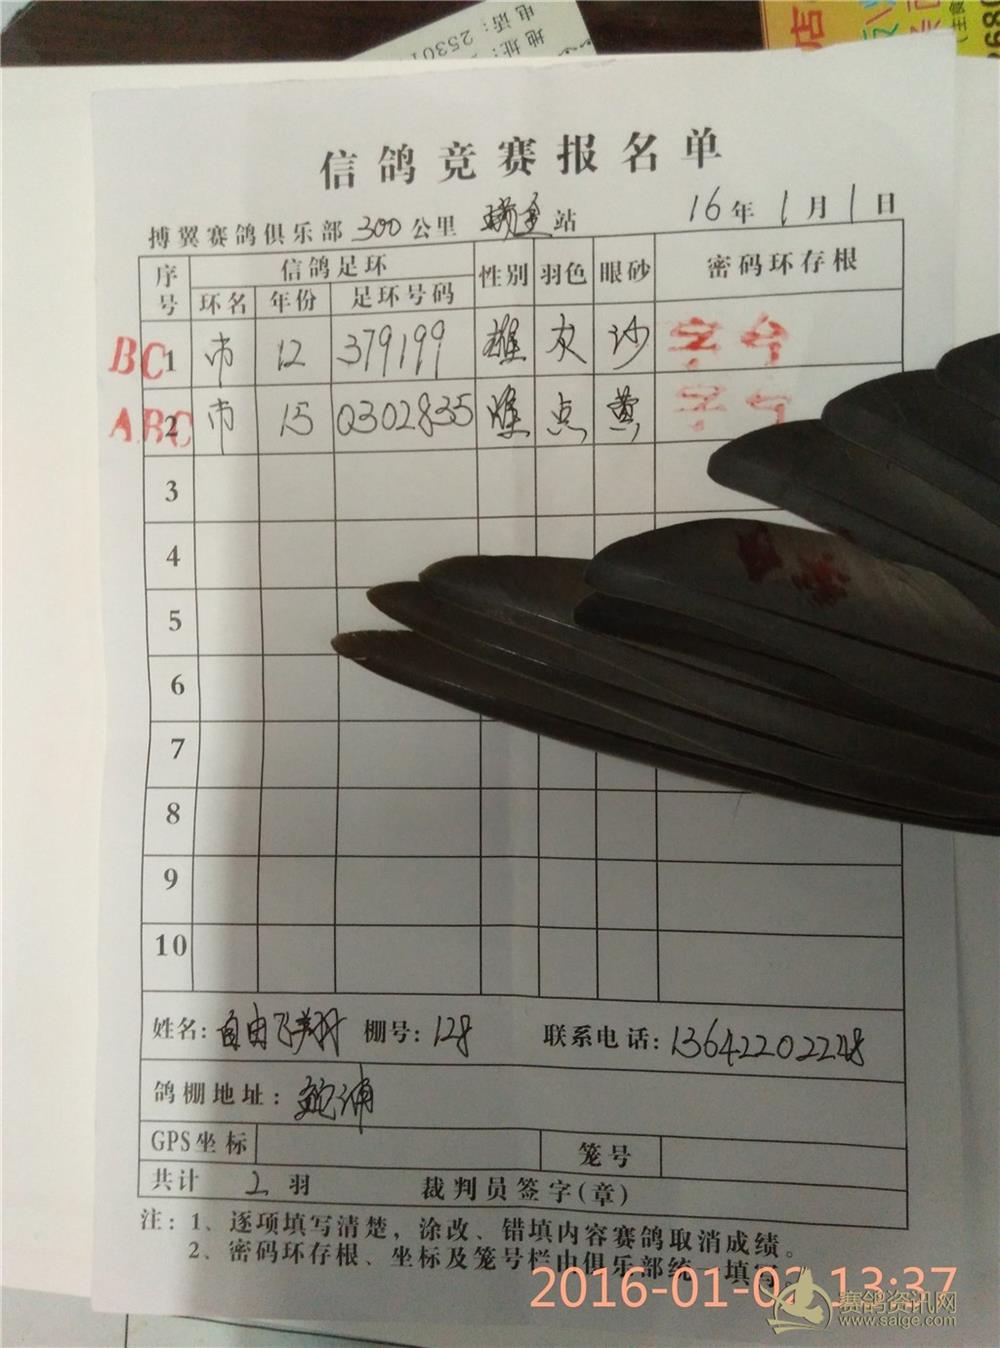 电话：25301
地址：
店
089
信鸽竞赛报名单
搏翼赛鸽俱乐部 300 公里 瑞金 站 16年1月1日
序号 信鸽足环 性别 羽色 眼砂 密码环存根
环名 年份 足环号码
BC 1 市 12 379199 雄 灰 沙
ABC 2 市 15 0302835 雄 点 黄
3
4
5
6
7
8
9
10
姓名：自由飞翔 棚号：128 联系电话：13642202228
鸽棚地址：
GPS坐标 笼号
共计 2 羽 裁判员签字(章)
注：1、逐项填写清楚，涂改、错填内容赛鸽取消成绩。
2、密码环存根、坐标及笼号栏由俱乐部统一填写。
2016-01-02 13:37
赛鸽资讯网
www.saige.com